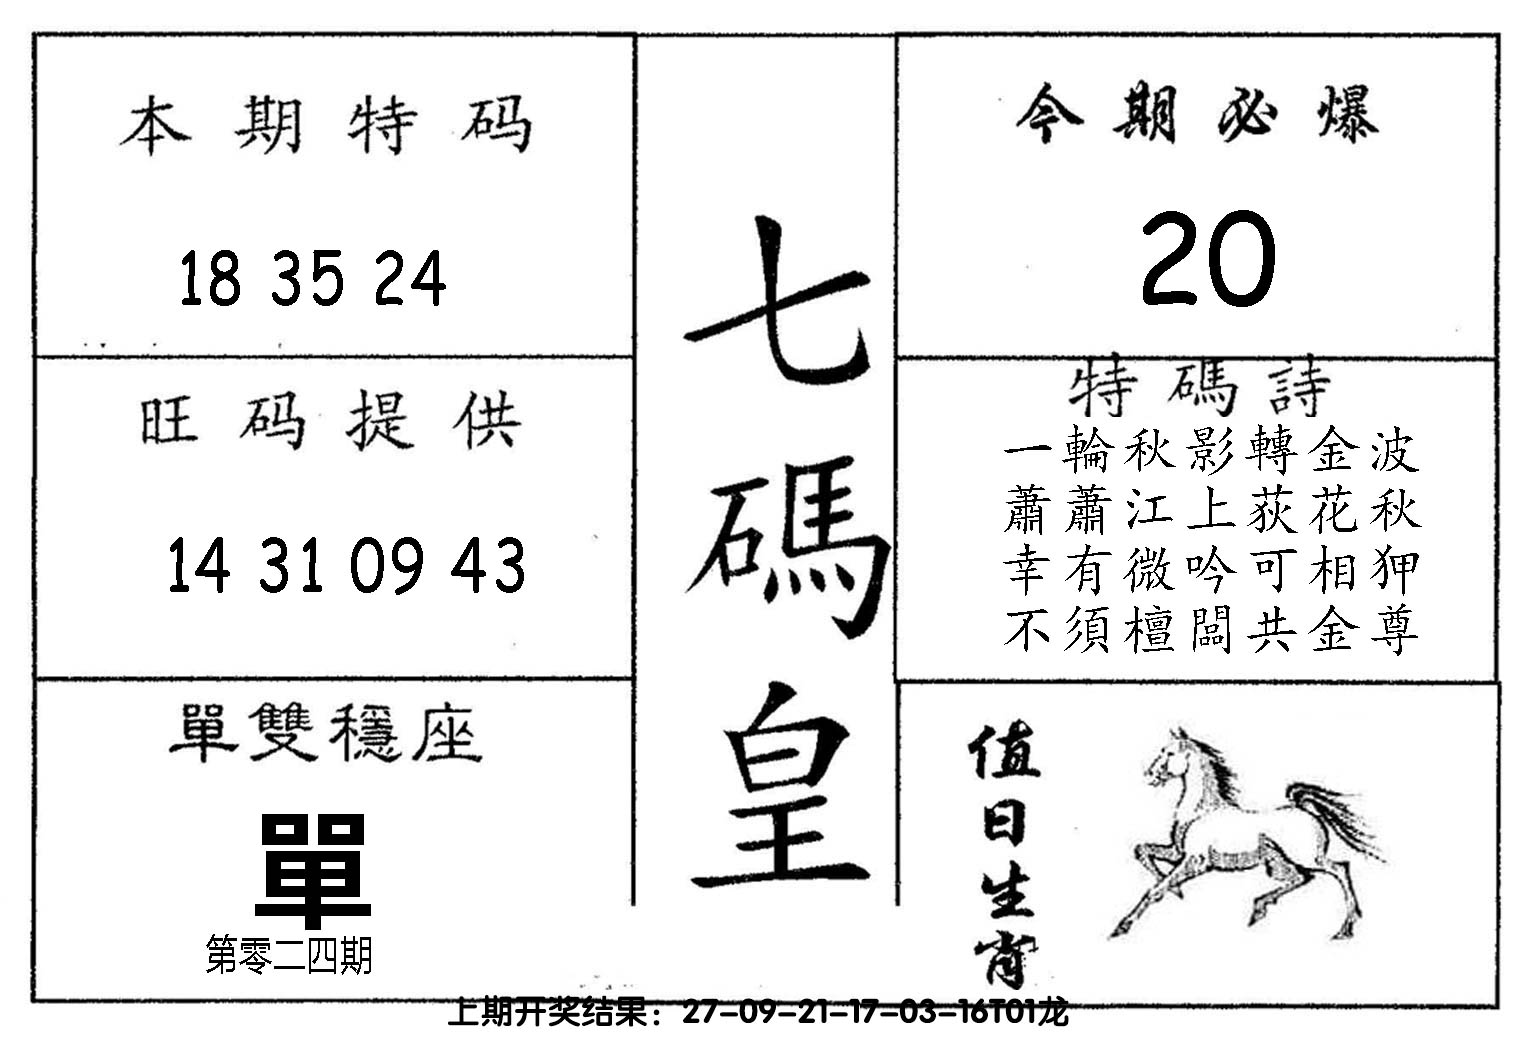 本期特码
18 35 24
旺码提供
14 31 09 43
單雙穩座
單
第零二四期
七碼皇
今期必爆
20
特碼詩
一輪秋影轉金波
蕭蕭江上荻花秋
幸有微吟可相狎
不須檀闆共金尊
值日生肖
上期开奖结果：27-09-21-17-03-16T01龙